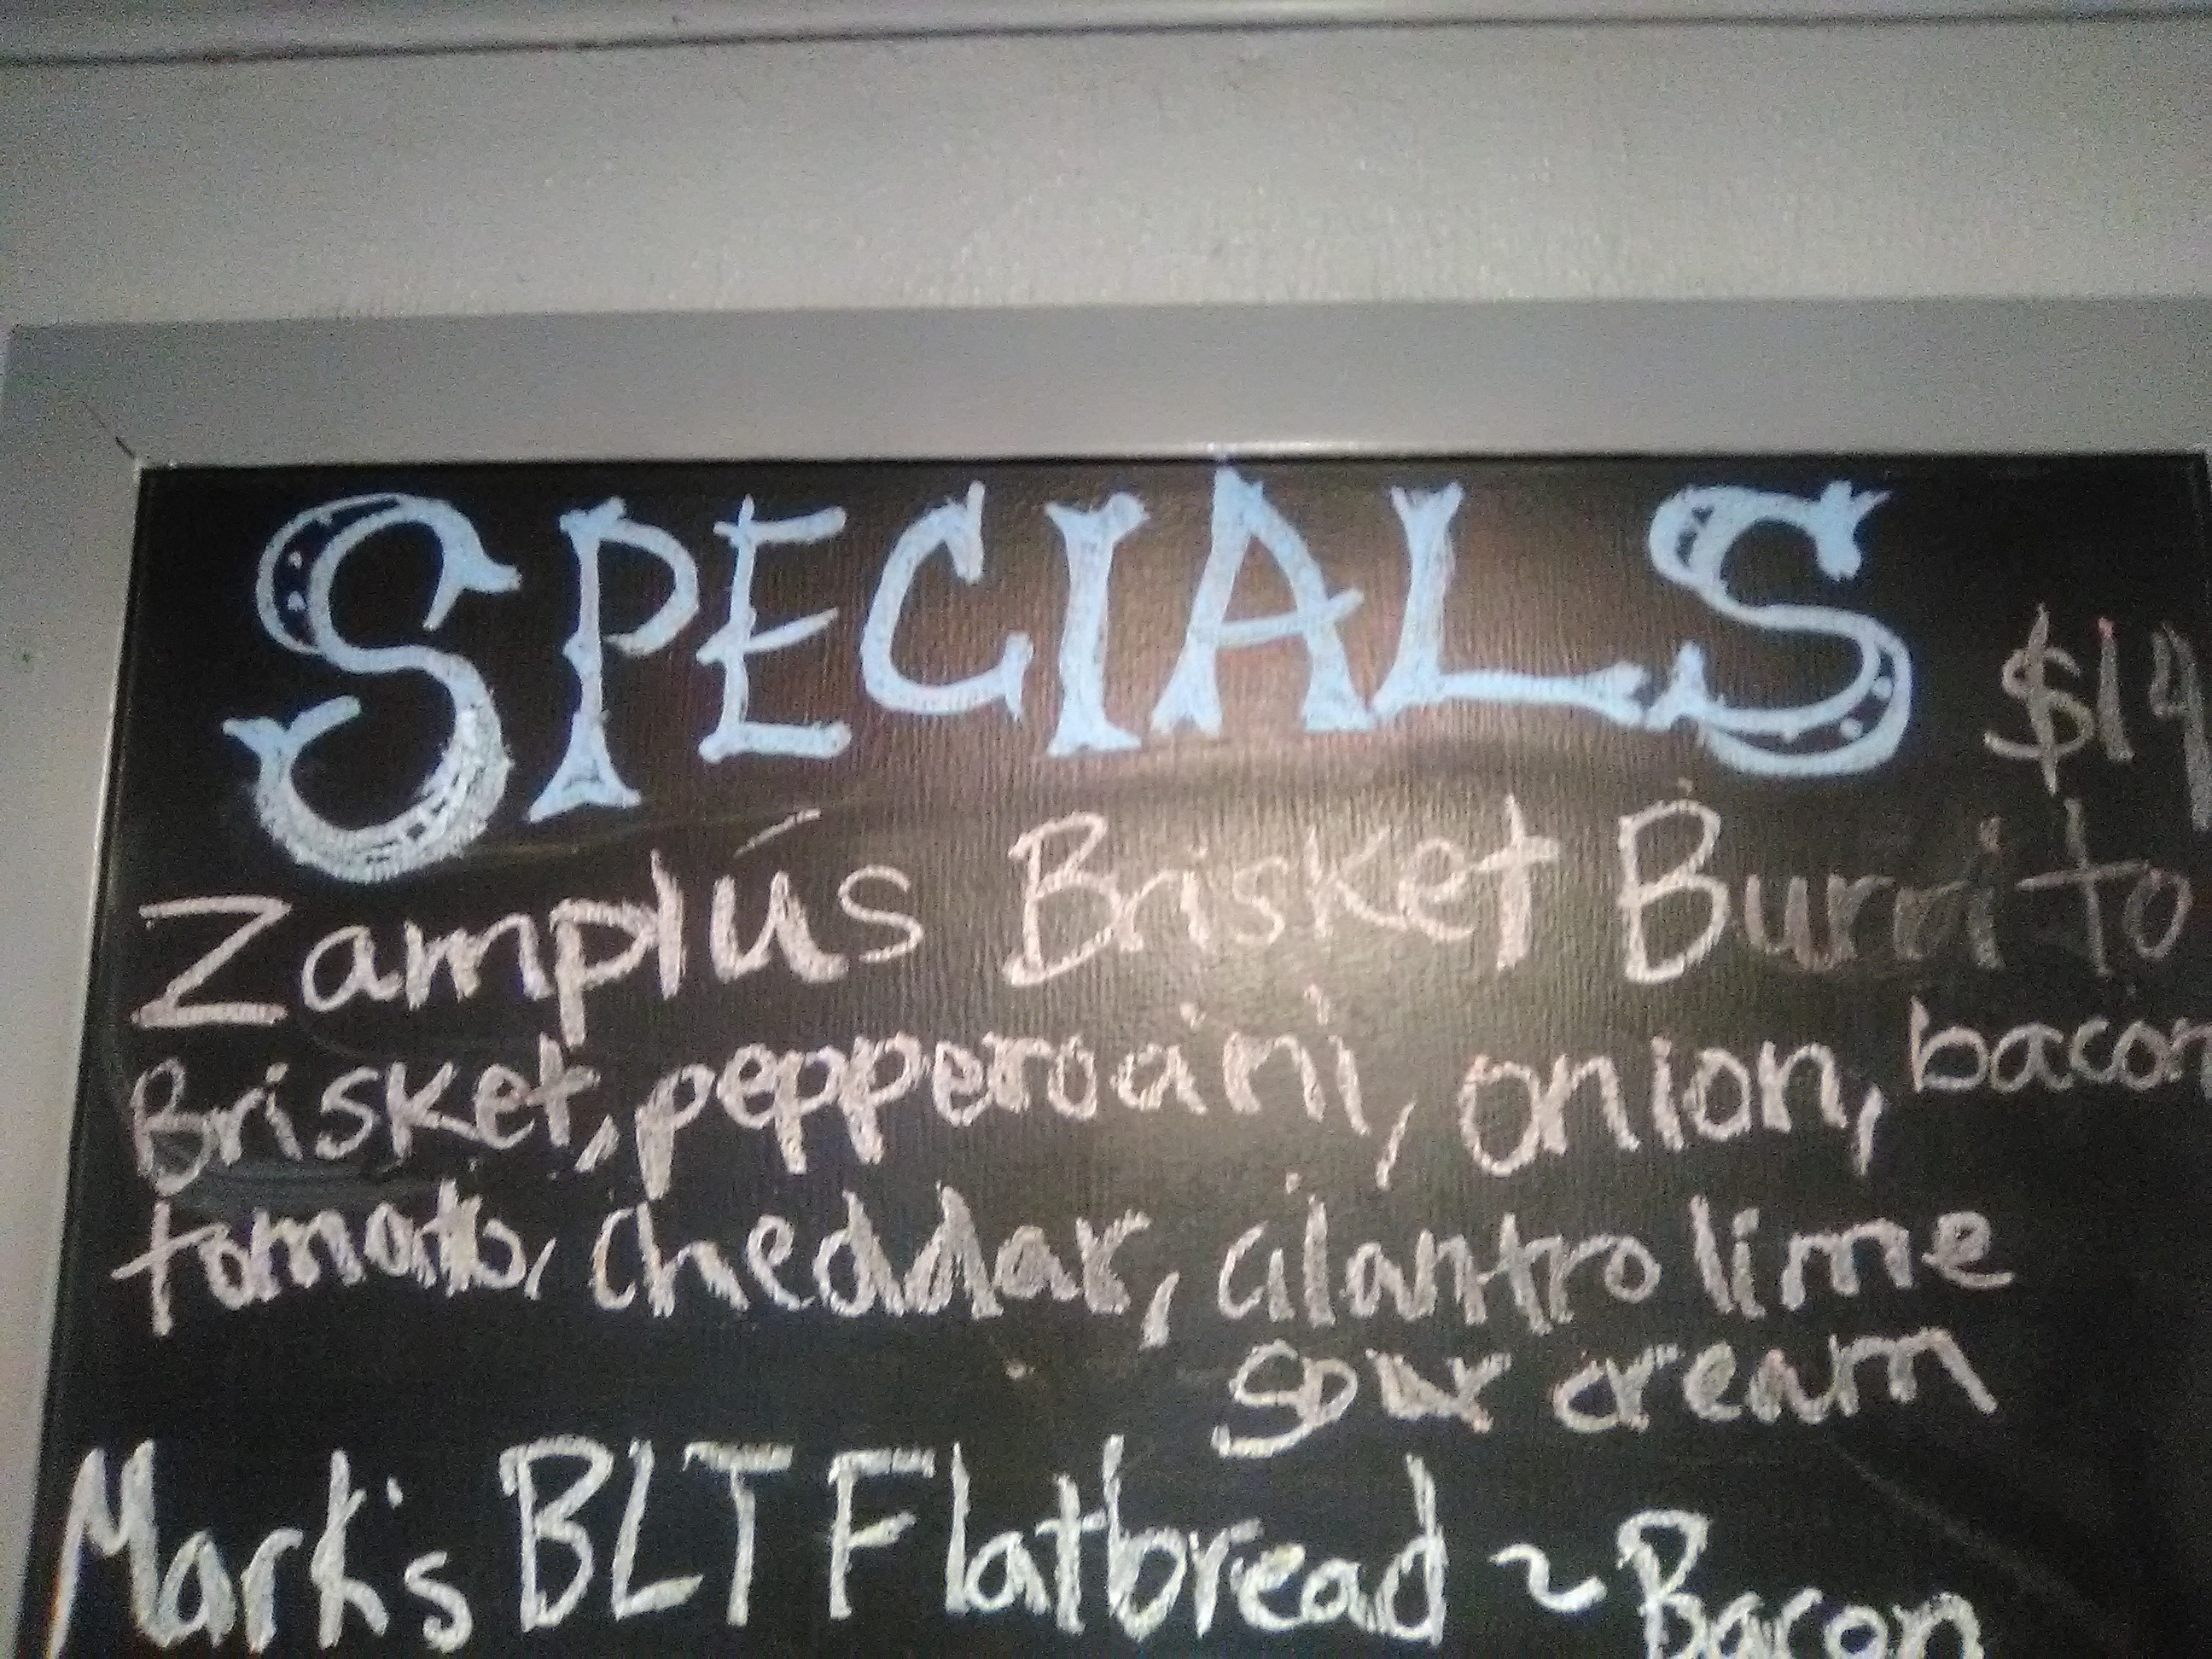 SPECIALS
$14
Zamplú's Brisket Burrito
Brisket, pepperoaini, onion, bacon
tomato, cheddar, cilantro lime
sour cream
Mark's BLT Flatbread ~ Bacon